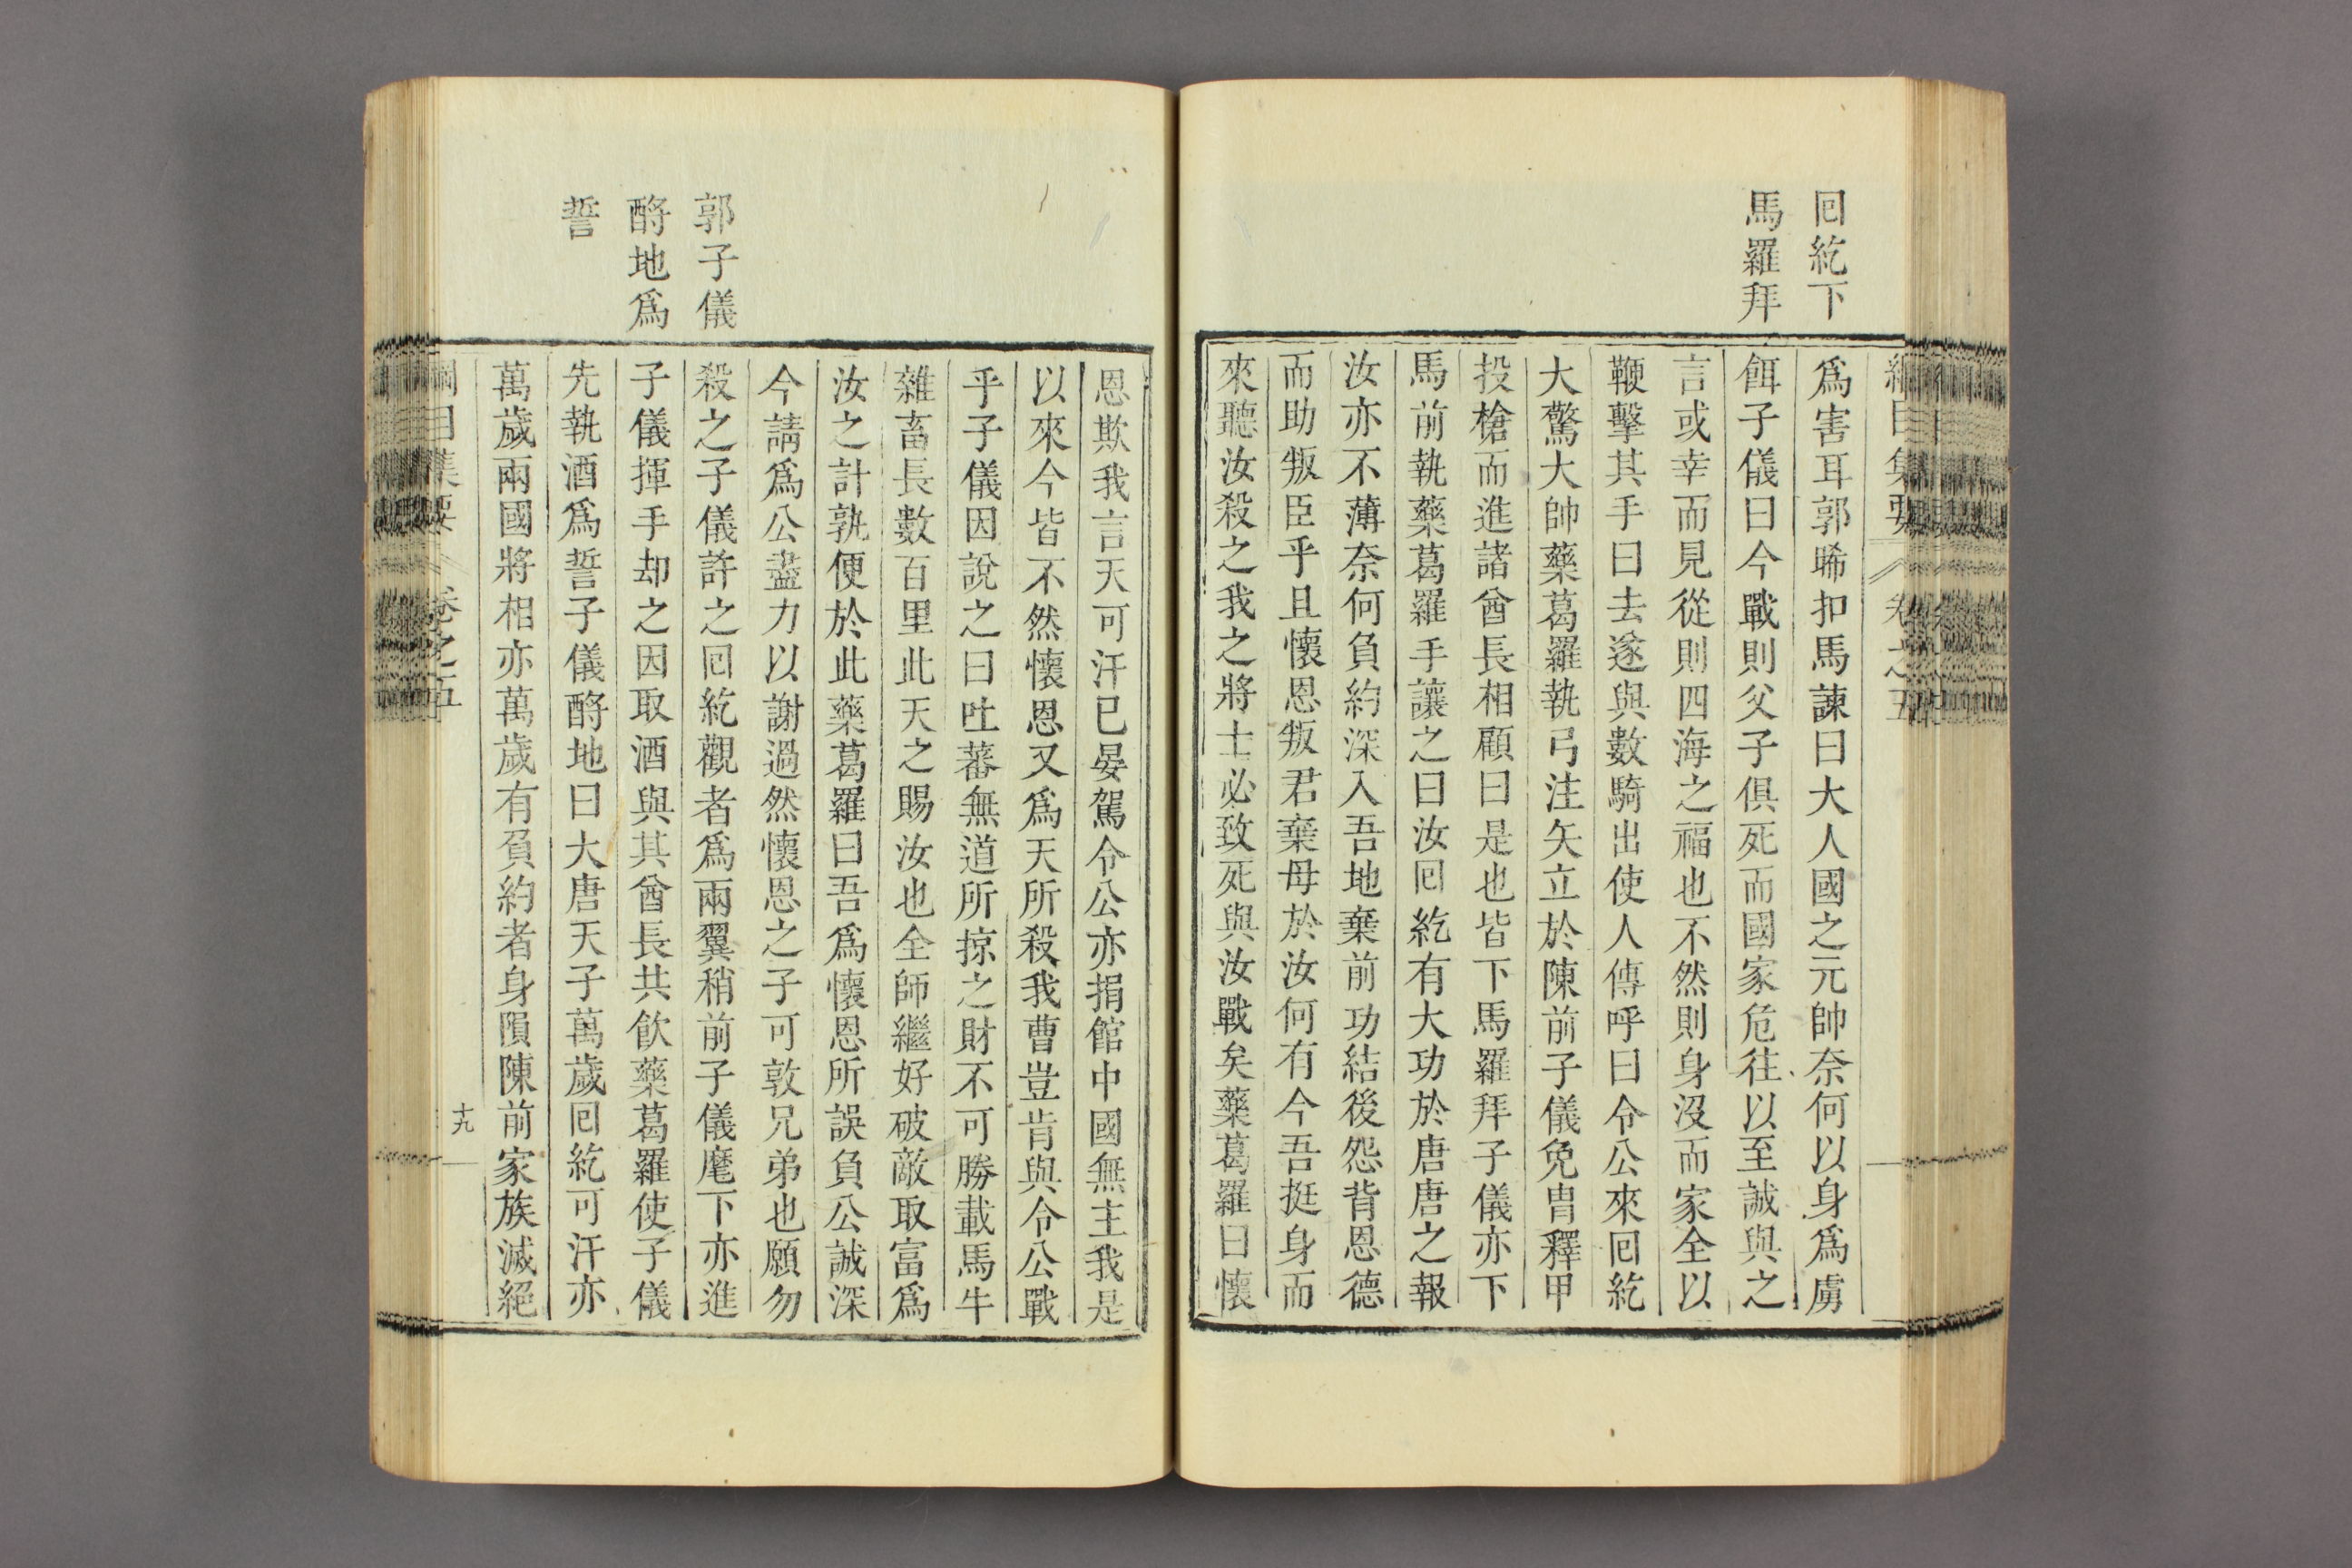 回紇下
馬羅拜
綱目集要 卷之五
爲害耳郭晞扣馬諫曰大人國之元帥奈何以身爲虜
餌子儀曰今戰則父子俱死而國家危往以至誠與之
言或幸而見從則四海之福也不然則身沒而家全以
鞭擊其手曰去遂與數騎出使人傳呼曰令公來回紇
大驚大帥藥葛羅執弓注矢立於陳前子儀免冑釋甲
投槍而進諸酋長相顧曰是也皆下馬羅拜子儀亦下
馬前執藥葛羅手讓之曰汝回紇有大功於唐唐之報
汝亦不薄奈何負約深入吾地棄前功結後怨背恩德
而助叛臣乎且懷恩叛君棄母於汝何有今吾挺身而
來聽汝殺之我之將士必致死與汝戰矣藥葛羅曰懷
郭子儀
酹地爲
誓
恩欺我言天可汗已晏駕令公亦捐館中國無主我是
以來今皆不然懷恩又爲天所殺我曹豈肯與令公戰
乎子儀因說之曰吐蕃無道所掠之財不可勝載馬牛
雜畜長數百里此天之賜汝也全師繼好破敵取富爲
汝之計孰便於此藥葛羅曰吾爲懷恩所誤負公誠深
今請爲公盡力以謝過然懷恩之子可敦兄弟也願勿
殺之子儀許之回紇觀者爲兩翼稍前子儀麾下亦進
子儀揮手却之因取酒與其酋長共飲藥葛羅使子儀
先執酒爲誓子儀酹地曰大唐天子萬歲回紇可汗亦
萬歲兩國將相亦萬歲有負約者身隕陳前家族滅絕
綱目集要 卷之五 十九